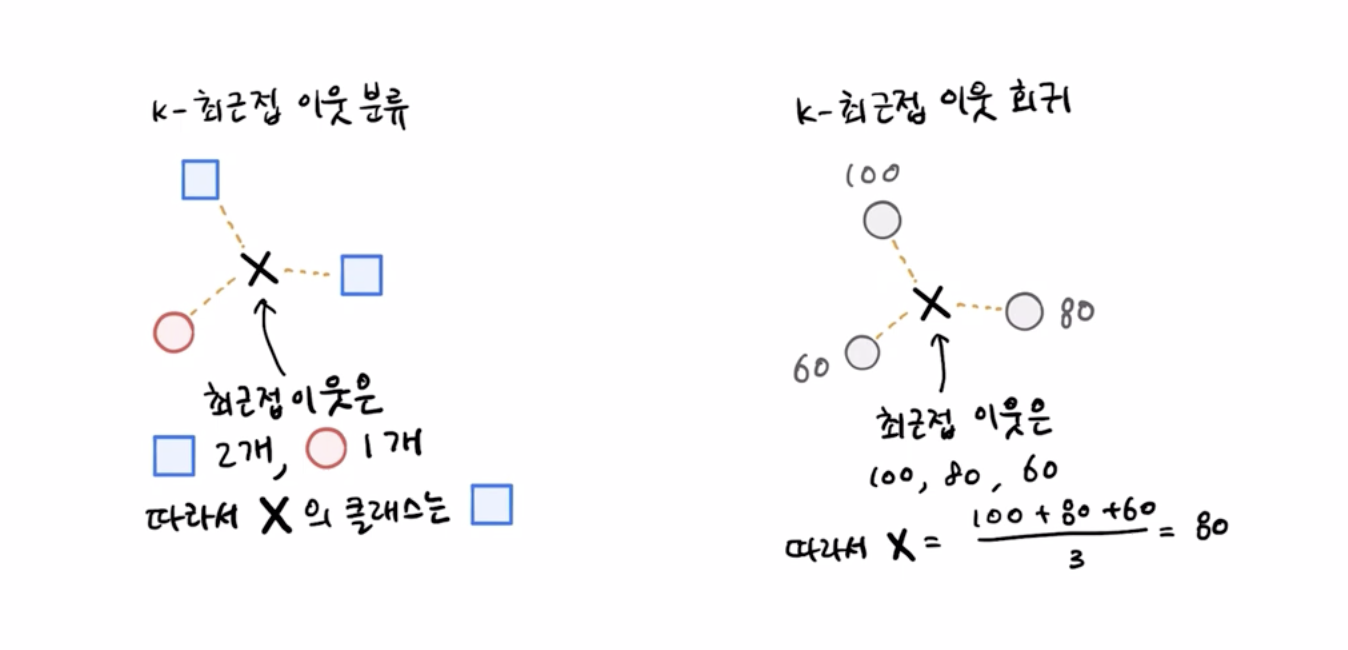 k-최근접 이웃 분류
최근접 이웃은
2개, 1개
따라서 X의 클래스는
k-최근접 이웃 회귀
100
80
60
최근접 이웃은
100, 80, 60
따라서 X = (100 + 80 + 60) / 3 = 80